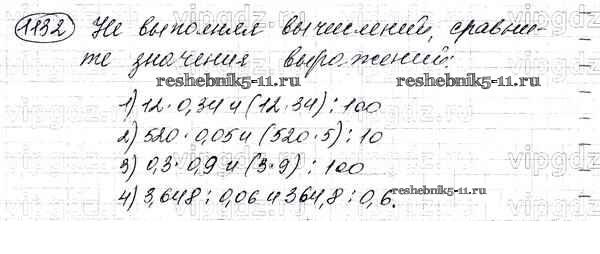 1132 Не выполняя вычислений, сравни-
те значения выражений:
reshebnik5-11.ru reshebnik5-11.ru
1) 12·0,34 и (12·34):100
2) 520·0,05 и (520·5):10
3) 0,3·0,9 и (3·9):100
4) 3,648:0,06 и 364,8:0,6.
reshebnik5-11.ru
vipgdz
vipgdz
vipgdz
vipgdz